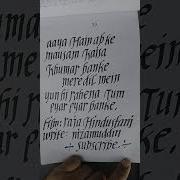 aaya Hain abke
mausam Kaisa
Khumar banke
mere dil mein
yun hi rahena Tum
pyar pyar banke.
Film: raja Hindustani
write: nizamuddin
÷ subscribe. ÷